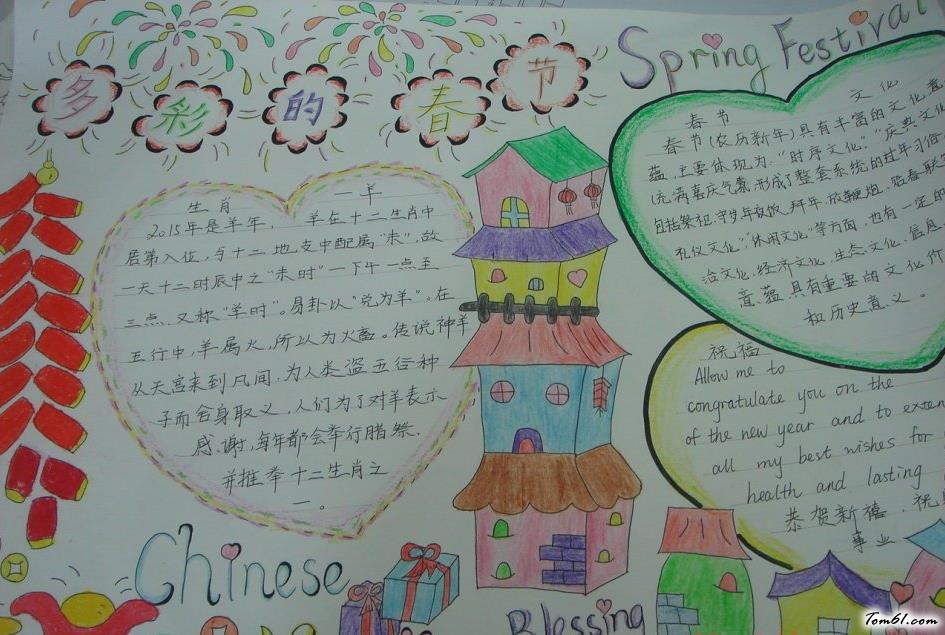 多彩的春节
Spring Festival
生肖
一羊
2015年是羊年, 羊在十二生肖中
居第八位,与十二地支中配属"未",故
一天十二时辰中之"未时"一下午一点至
三点,又称"羊时"。易卦以"兑为羊"。在
五行中,羊属火,所以为火畜。传说神羊
从天宫来到凡间,为人类盗五谷种
子而舍身取义,人们为了对羊表示
感谢,每年都会举行腊祭,
并推举十二生肖之
一。
春节 文化
春节(农历新年)具有丰富的文化意
蕴,主要体现为:"时序文化","庆典文化
充满喜庆气氛,形成了整套系统的过年习俗
包括祭祀.守岁.年夜饭.拜年.放鞭炮.贴春联
礼仪文化","休闲文化"等方面,也有一定的
治文化.经济文化.生态文化.信息
意蕴,具有重要的文化价
和历史意义。
祝福
Allow me to
congratulate you on the
of the new year and to exten
all my best wishes for
health and lasting
恭贺新禧,祝
事业
Chinese
Blessing
Tom61.com